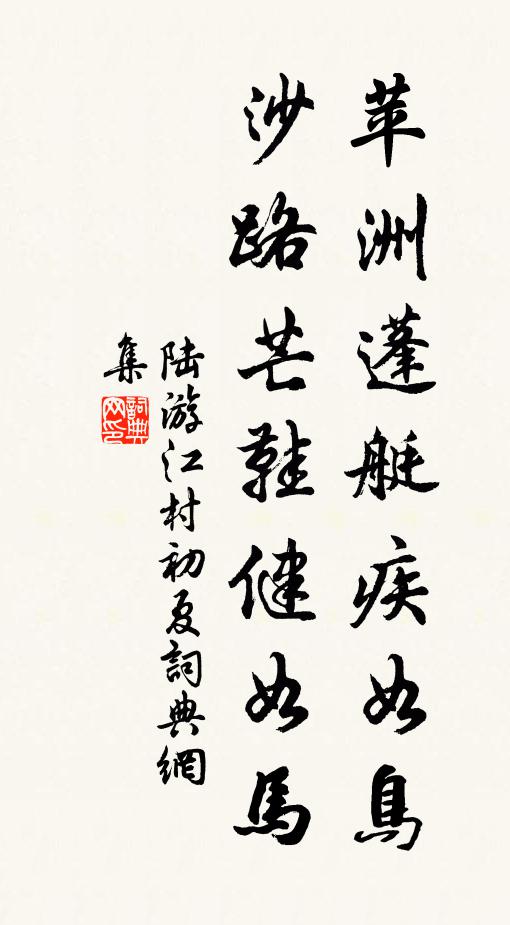 苹洲蓬艇疾如鳥
沙路芒鞋健如馬
陆游江村初夏詞典網
集
詞典网印